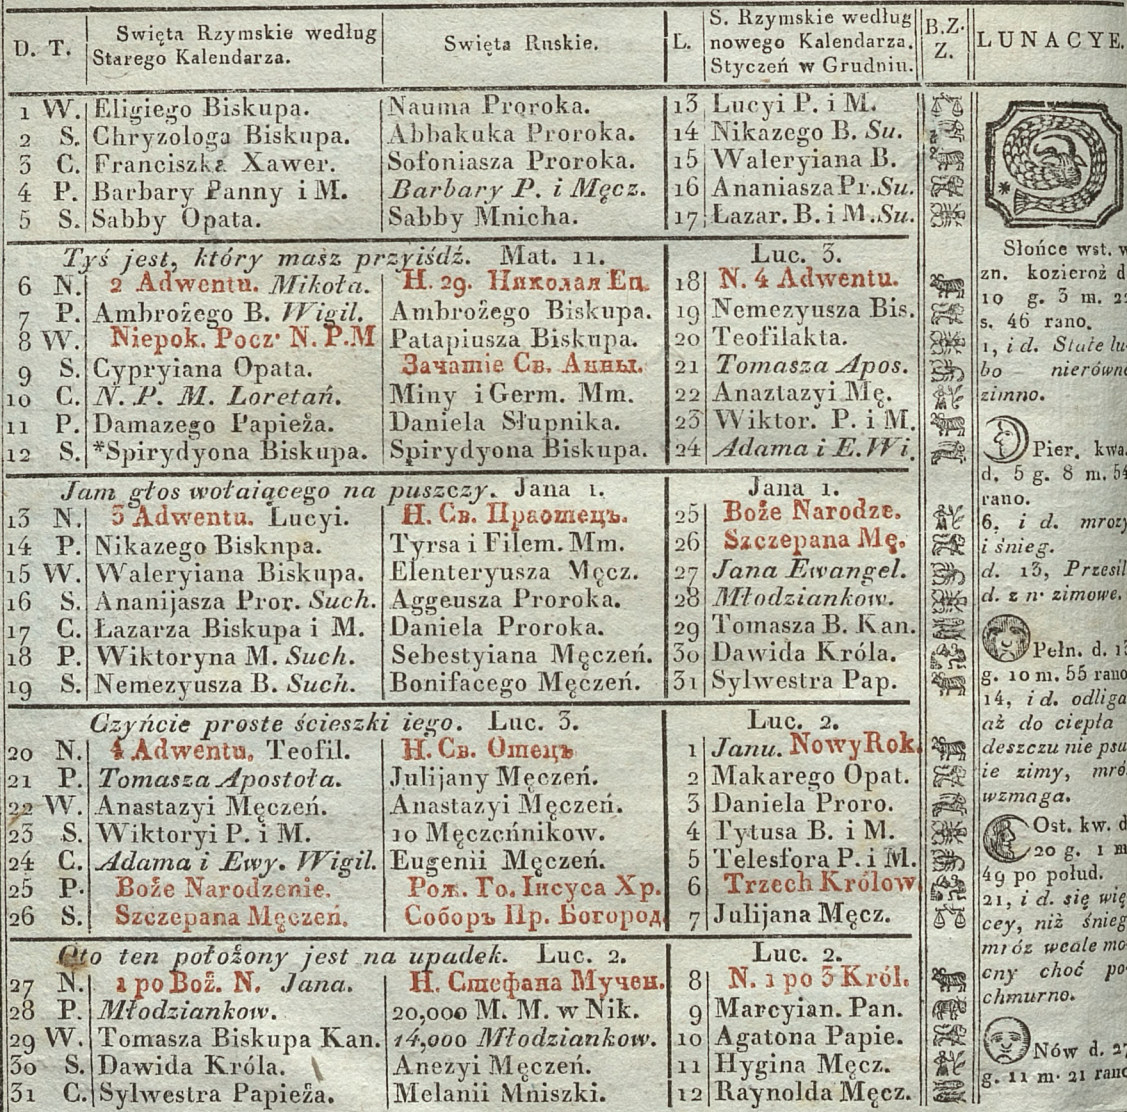 D. T. | Swięta Rzymskie według Starego Kalendarza. | Swięta Ruskie. | L. | S. Rzymskie według nowego Kalendarza. Styczeń w Grudniu. | B.Z. Z. | LUNACYE.
1 W. Eligiego Biskupa. Nauma Proroka. 13 Lucyi P. i M.
2 S. Chryzologa Biskupa. Abbakuka Proroka. 14 Nikazego B. Su.
3 C. Franciszka Xawer. Sofoniasza Proroka. 15 Waleryiana B.
4 P. Barbary Panny i M. Barbary P. i Męcz. 16 Ananiasza Pr. Su.
5 S. Sabby Opata. Sabby Mnicha. 17 Łazar. B. i M. Su.
Tyś jest, który masz przyiśdź. Mat. 11. Luc. 3.
6 N. 2 Adwentu. Mikoła. Н. 29. Николая Еп. 18 N. 4 Adwentu.
7 P. Ambrożego B. Wigil. Ambrożego Biskupa. 19 Nemezyusza Bis.
8 W. Niepok. Pocz· N. P.M Patapiusza Biskupa. 20 Teofilakta.
9 S. Cypryiana Opata. Зачатіе Св. Анны. 21 Tomasza Apos.
10 C. N. P. M. Loretań. Miny i Germ. Mm. 22 Anaztazyi Mę.
11 P. Damazego Papieża. Daniela Słupnika. 23 Wiktor. P. i M.
12 S. *Spirydyona Biskupa. Spirydyona Biskupa. 24 Adama i E. Wi.
Jam głos wołaiącego na puszczy. Jana 1. Jana 1.
13 N. 3 Adwentu. Lucyi. Н. Св. Праотецъ. 25 Boże Narodze.
14 P. Nikazego Bisknpa. Tyrsa i Filem. Mm. 26 Szczepana Mę.
15 W. Waleryiana Biskupa. Elenteryusza Męcz. 27 Jana Ewangel.
16 S. Ananijasza Pror. Such. Aggeusza Proroka. 28 Młodziankow.
17 C. Łazarza Biskupa i M. Daniela Proroka. 29 Tomasza B. Kan.
18 P. Wiktoryna M. Such. Sebestyiana Męczeń. 30 Dawida Króla.
19 S. Nemezyusza B. Such. Bonifacego Męczeń. 31 Sylwestra Pap.
Czyńcie proste ścieszki iego. Luc. 3. Luc. 2.
20 N. 4 Adwentu. Teofil. Н. Св. Отецъ 1 Janu. Nowy Rok.
21 P. Tomasza Apostoła. Julijany Męczeń. 2 Makarego Opat.
22 W. Anastazyi Męczeń. Anastazyi Męczeń. 3 Daniela Proro.
23 S. Wiktoryi P. i M. 10 Męczeńnikow. 4 Tytusa B. i M.
24 C. Adama i Ewy. Wigil. Eugenii Męczeń. 5 Telesfora P. i M.
25 P. Boże Narodzenie. Рож. Го. Іисуса Хр. 6 Trzech Królow
26 S. Szczepana Męczeń. Соборъ Пр. Богород 7 Julijana Męcz.
Oto ten położony jest na upadek. Luc. 2. Luc. 2.
27 N. 1 po Boż. N. Jana. Н. Стефана Мучен. 8 N. 1 po 3 Król.
28 P. Młodziankow. 20,000 M. M. w Nik. 9 Marcyian. Pan.
29 W. Tomasza Biskupa Kan. 14,000 Młodziankow. 10 Agatona Papie.
30 S. Dawida Króla. Anezyi Męczeń. 11 Hygina Męcz.
31 C. Sylwestra Papieża. Melanii Mniszki. 12 Raynolda Męcz.
Słońce wst. w
zn. kozieroż d
10 g. 3 m. 22
s. 46 rano.
1, i d. Stałe lu-
bo nierówno
zimno.
Pier. kwa.
d. 5 g. 8 m. 54
rano.
6, i d. mrozy
i śnieg.
d. 13, Przesil
d. z n· zimowe.
Pełn. d. 13
g. 10 m. 55 rano
14, i d. odliga
aż do ciepła
deszczu nie psu
ie zimy, mróz
wzmaga.
Ost. kw. d
20 g. 1 m
49 po połud.
21, i d. się wię
cey, niż śnieg
mróz wcale mo-
cny choć po-
chmurno.
Nów d. 27
g. 11 m· 21 rano